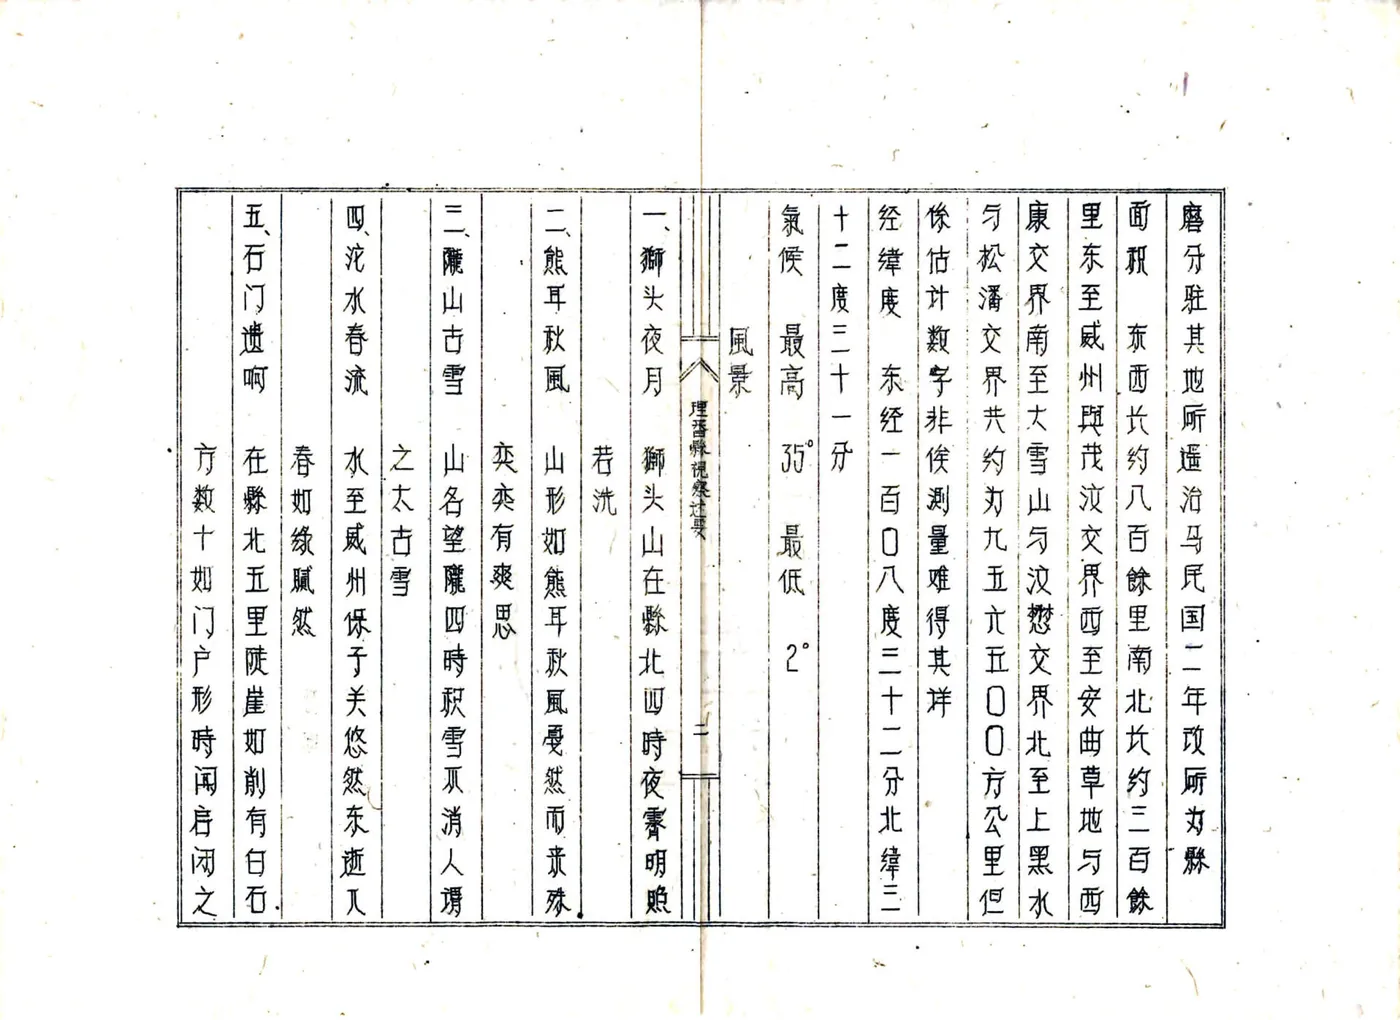 磨分驻其地所遥治马民国二年改所为縣
面积　东西长约八百餘里南北长约三百餘
里东至威州與茂汶交界西至安曲草地与西
康交界南至大雪山与汶懋交界北至上黑水
与松潘交界共约为九五六五〇〇方公里但
係估计数字非俟测量难得其详
经緯度　东经一百〇八度三十二分北緯三
十二度三十一分
氣候　最高　35°　最低　2°
風景
理番縣視察述要
二
一、獅头夜月　獅头山在縣北四時夜霽明照
若洗
二、熊耳秋風　山形如熊耳秋風戛然而来殊
奕奕有爽思
三、隴山古雪　山名望隴四時积雪不消人谓
之太古雪
四、沱水春流　水至威州保子关悠然东逝入
春如綠膩然
五、石门遗啊　在縣北五里陡崖如削有白石
方数十如门户形時闻启闭之